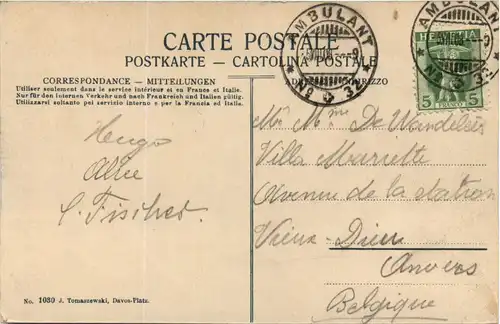 CARTE POSTALE
POSTKARTE - CARTOLINA POSTALE
CORRESPONDANCE - MITTEILUNGEN
Utiliser seulement dans le service intérieur et en France et Italie.
Nur für den internen Verkehr und nach Frankreich und Italien gültig.
Utilizzarsi soltanto pei servizio interno e per la Francia ed Italia.
AMBULANT
No 32
AMBULANT
No 32
HELVETIA
5 FRANCO 5
Hugo
Alice
C. Fischer
Mr Mme De Wandeleer
Villa Mariette
Avenue de la station
Vieux-Dieu
Anvers
Belgique
No. 1030 J. Tomaszewski, Davos-Platz.